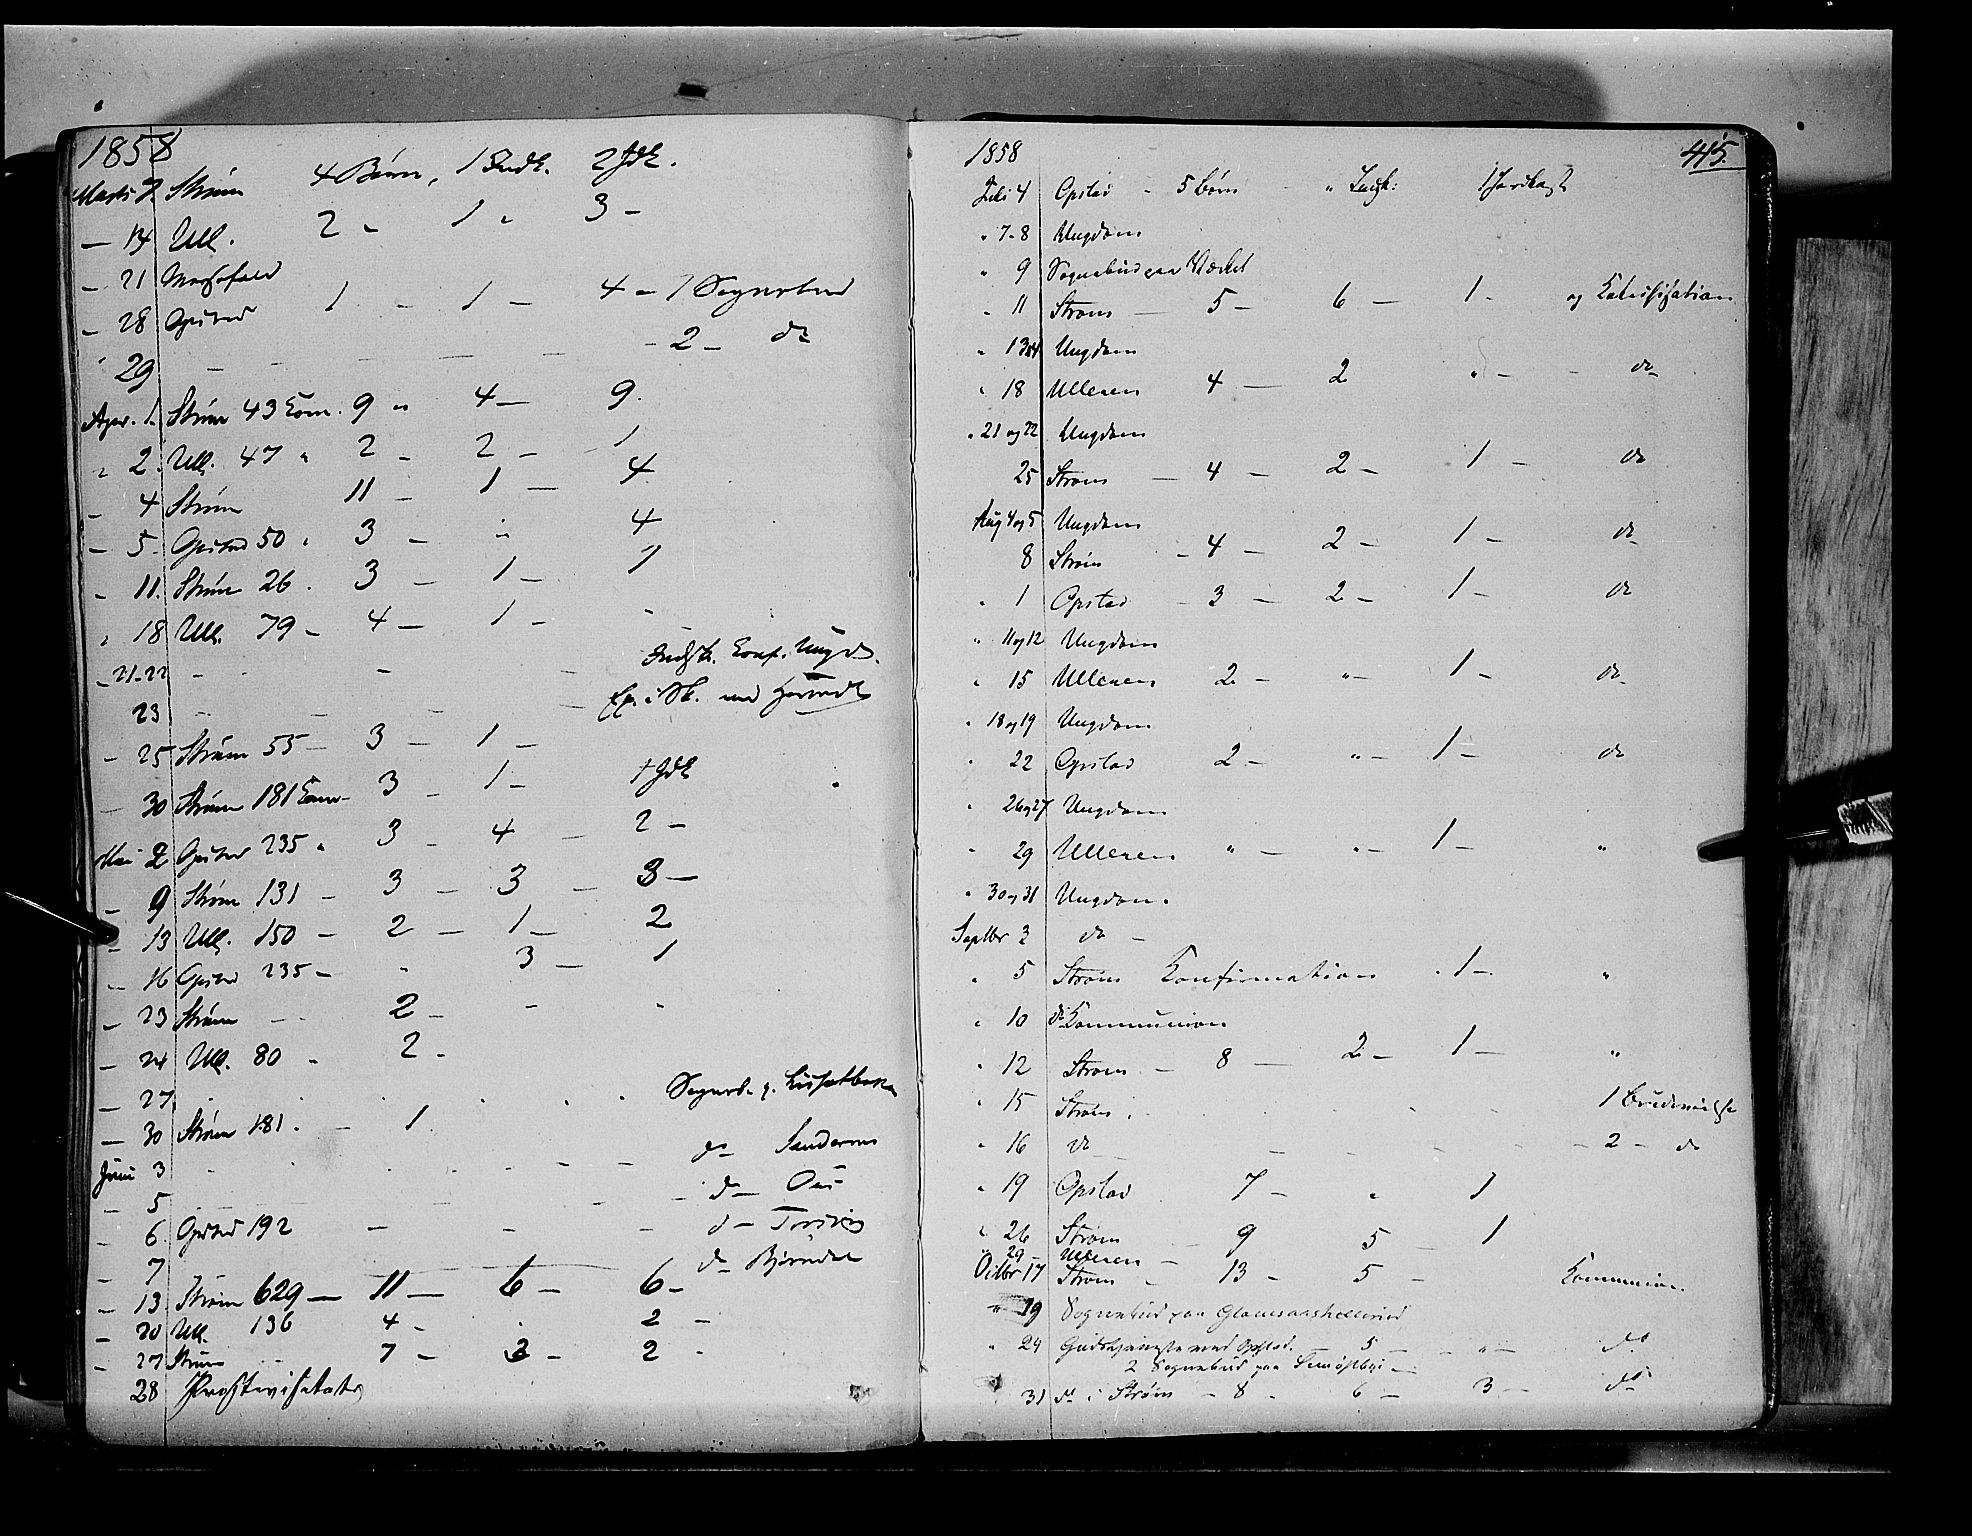 1858
Marts 7 Strøm 4 Børn, 1 Indl. 2 Jdk.
— 14 Ull. 2 - 1 " 3 -
— 21 Messefald
— 28 Opstad 1 - 1 — 4 - 1 Sognebud
" 29 — — — — — - 2 - do
Apr. 1. Strøm 43 Com. 9 " 4 — 9.
" 2. Ull. 47 " 2 - 2 - 1
— 4 Strøm 11 - 1 — 4
— 5 Opstad 50 " 3 - " 4
— 11. Strøm 26. 3 — 1 — 1
" 18 Ull. 79 - 4 — 1 - -
— 21-22 - - Conf. Ungd.
23 - — - — med
— 25 Strøm 55 — 3 — 1 —
— 30 Strøm 181 Com - 3 - 1 - † Jdk
Mai 2 Opstad 235 " 3 - 4 — 2 -
— 9 Strøm 131 - 3 — 3 — 3 —
— 13 Ull. 150 - 2 — 1 — 2
— 16 Opstad 235 — " 3 — 1
— 23 Strøm — 2 - - "
— 24 Ull. 80 " 2 -
— 27.
— 30 Strøm 181. - 1.
Juni 3 do Sanderna
— 5 do
— 6. Opstad 192 — - — do
— 7 do
— 13. Strøm 629 — 11 — 6 — 6 -
— 20 Ull. 136 4 - . 2 -
— 27 Strøm 7 - 3 - 2 -
28 Prostevisitats
1858 415.
Juli 4 Opstad - 5 børn - " 1 Jordkast
" 7-8 Ungdom
" 9 Sognebud paa Værket
" 11 Strøm — 5 - 6 — 1 - og Katechisation
" Ungdom
" 18 Ulleren 4 — 2 " - - do
" 21 og 22 Ungdom
25 Strøm — 4 - 2 - 1 - do
Aug 4 og 5 Ungdom
8 Strøm - 4 - 2 - 1 - do
" 1 Opstad - 3 - 2 - 1 - do
" 11 og 12 Ungdom
" 15 Ulleren 2 - " - 1 - do
" 18 og 19 Ungdom
" 22 Opstad 2 - " - 1 - do
" 26 og 27 Ungdom
" 29 Ulleren " - " - 1 - "
" 30 og 31 Ungdom.
Septbr 3 do -
" 5 Strøm Konfirmation . 1 — "
" 10 do Kommunion
" 12 Strøm - 8 - 2 - 1 - "
" 15 Strøm. 1 Brudevielse
" 16 do - - - - 2 - do
" 19 Opstad 7 - " 1
" 26 Strøm - 9 5 - 1
" 29 - Ulleren -
Octbr 17 Strøm - 13 - 5 - Kommunion.
" 19 Sognebud paa
" 24 Gudstjeneste ved Opstad. - 5 - " - do
2 Sognebud paa
" 31 do i Strøm - 8 - 6 - 3 - do